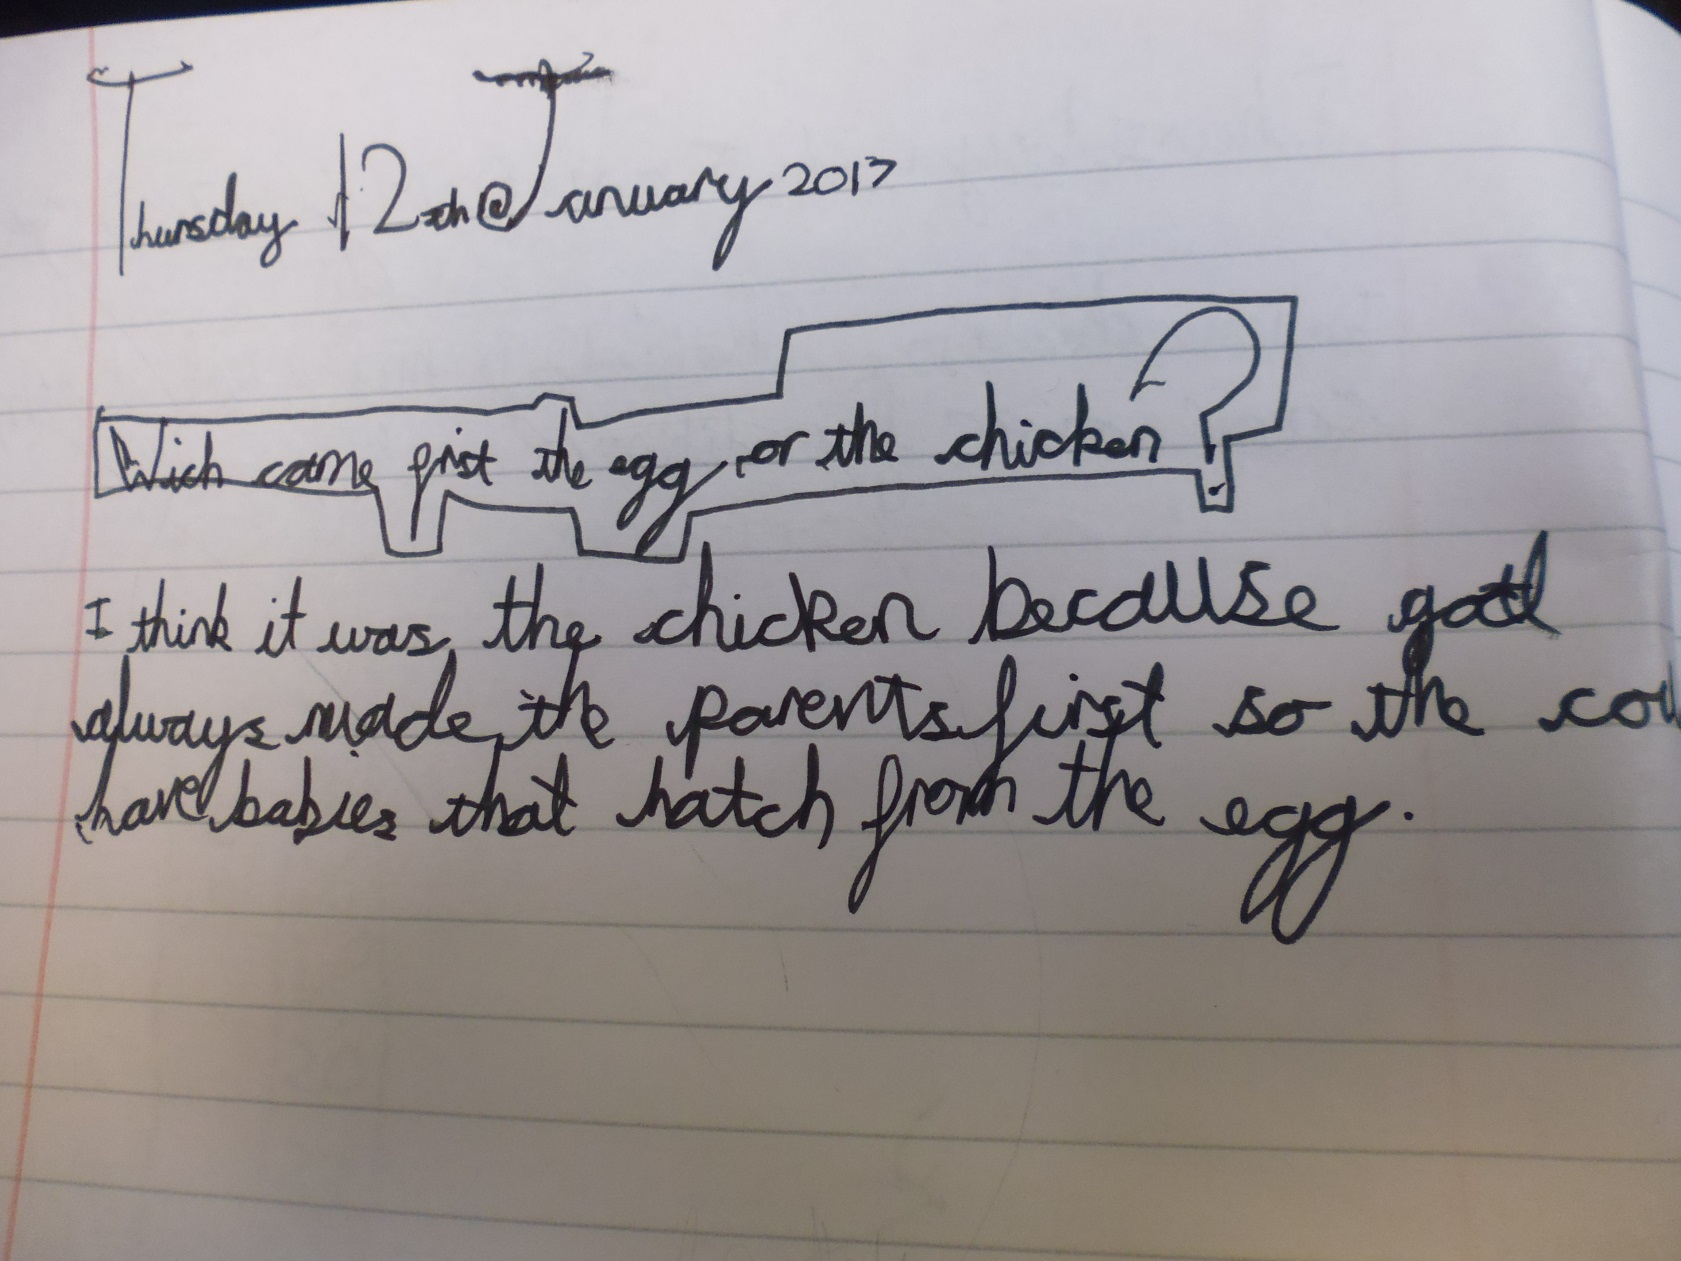 Thursday 12th January 2017
Wich came first the egg or the chicken?
I think it was the chicken because god
always made the parents first so the
have babies that hatch from the egg.